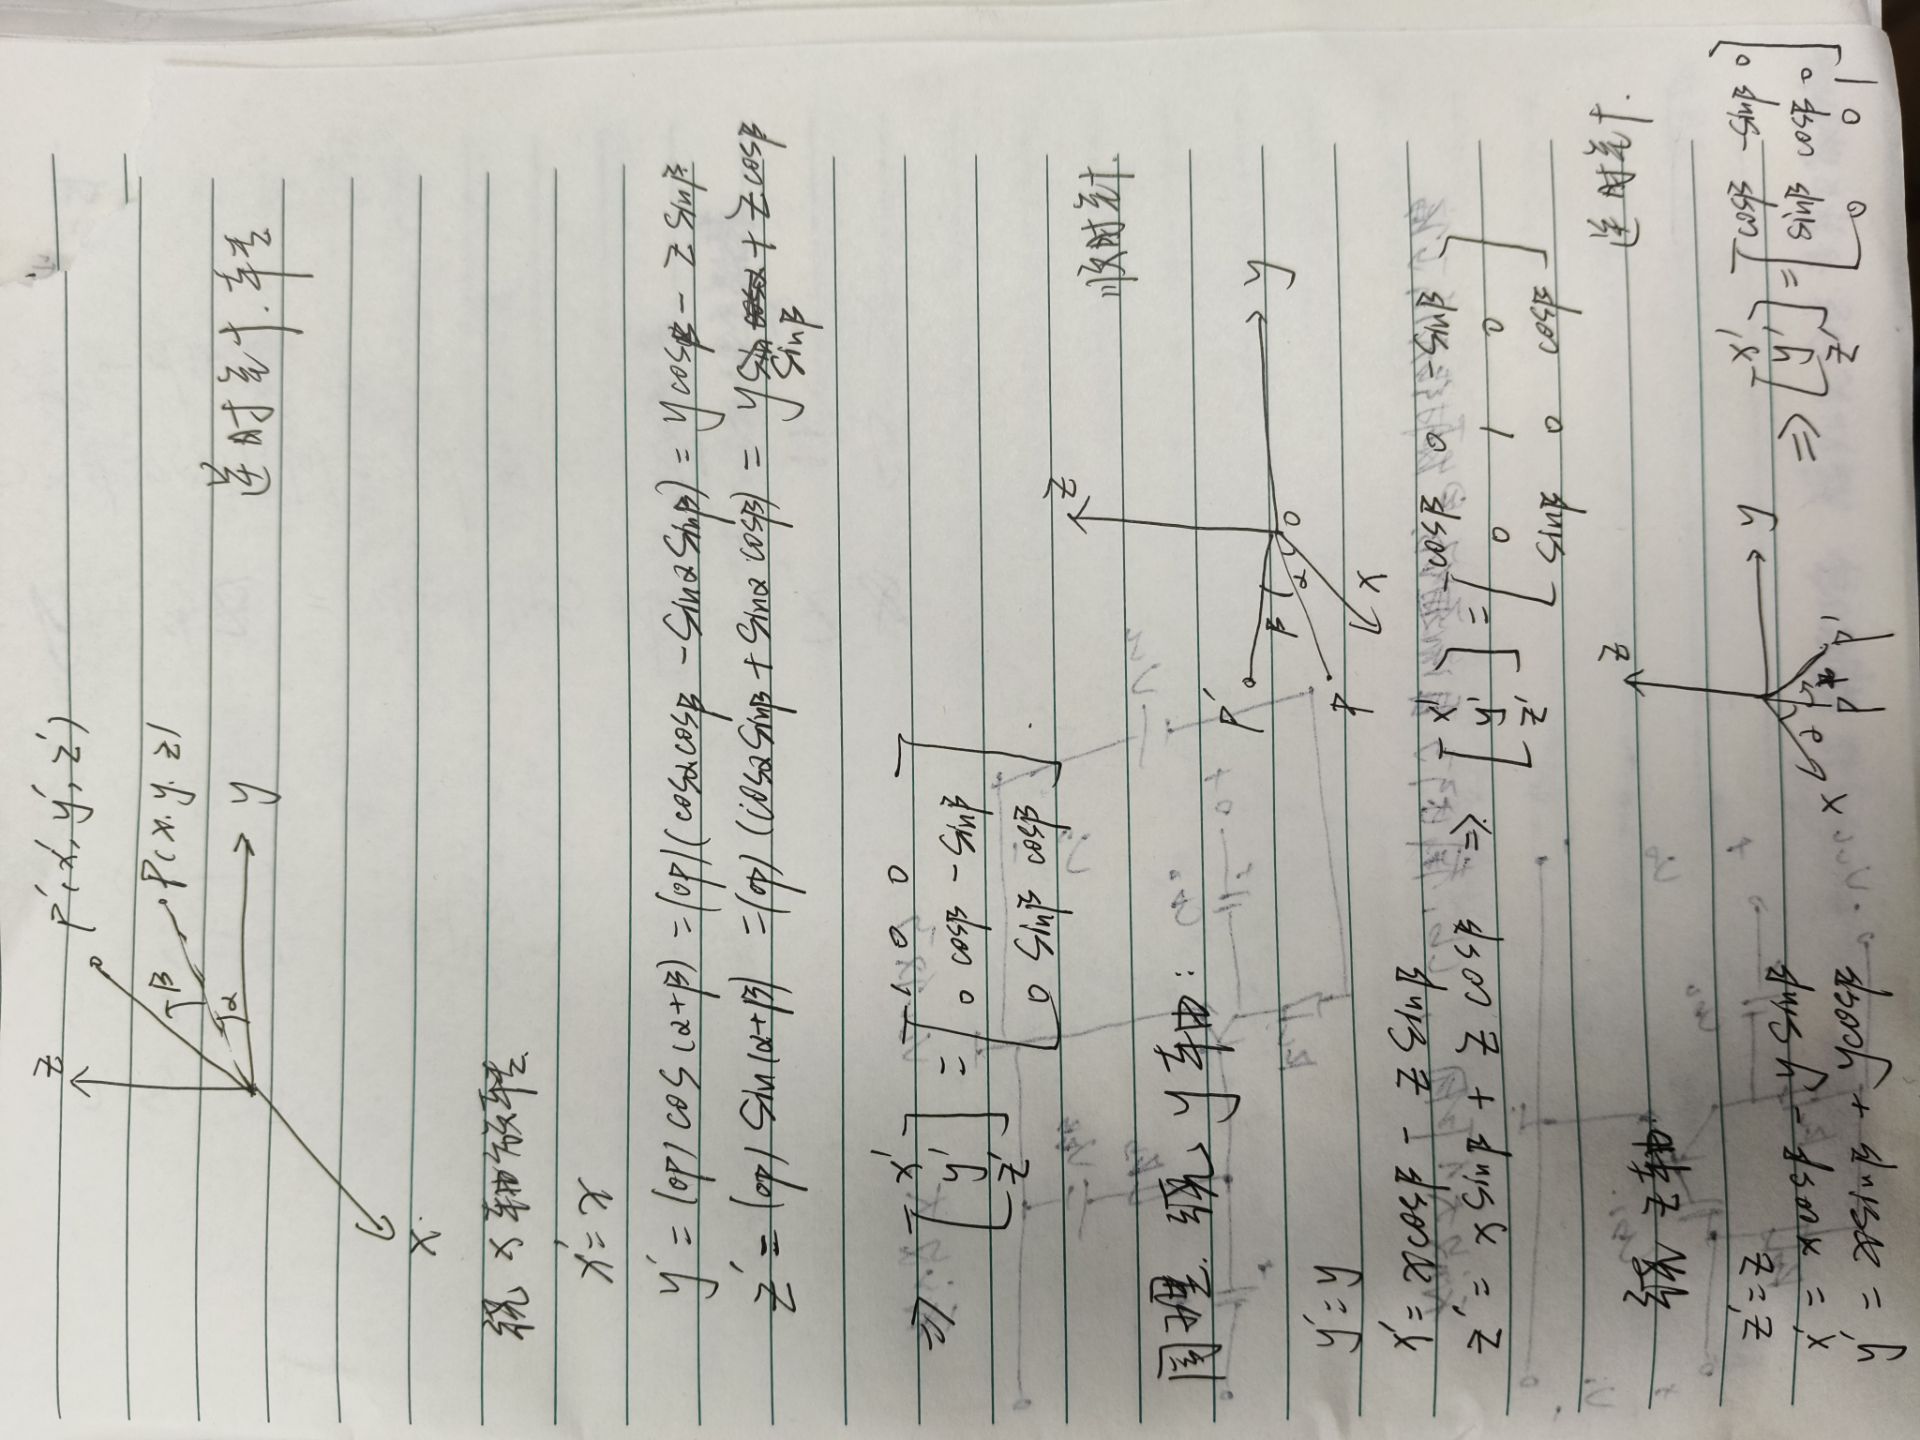 z
P'(x', y', z')
β
P(x. y. z)
α
y
逆时针.转
x.
绕 x 轴旋转
x' = x
y' = (op) cos(α+β) = (op)(cosαcosβ - sinαsinβ) = ycosβ - z sinβ
z' = (op) sin(α+β) = (op) (cosαsinβ + sinαcosβ) = y sinβ + z cosβ
⇒ [x' y' z'] = [1 0 0
0 cosβ -sinβ
0 sinβ cosβ].
z
顺时针.
同理. 绕 y 轴:
P'
β
α
O
y
P
x
y' = y
x' = xcosβ - z sinβ
z' = x sinβ + z cosβ ⇒ [x' y' z'] = [cosβ 0 -sinβ
0 1 0
sinβ 0 cosβ]
逆时针.
绕 z 轴
z
z' = z
x' = xcosβ - y sinβ
y' = xsinβ + ycosβ
y
x
α
P
P'
⇒ [x' y' z'] = [cosβ -sinβ 0
sinβ cosβ 0
0 0 1]